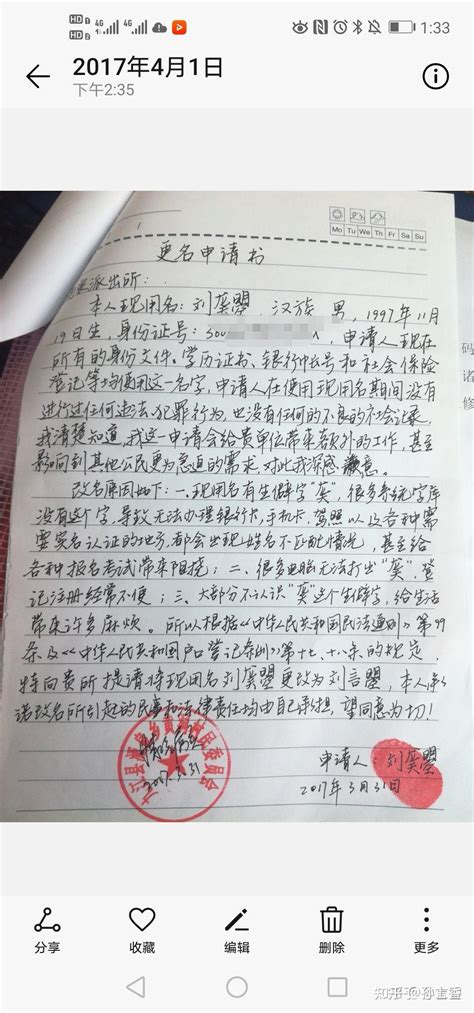 HD1 4G HD2 4G 1:33
2017年4月1日
下午2:35
Mo Tu We Th Fr Sa Su
更名申请书
派出所：
本人现用名：刘䶮曌，汉族，男，1997年11月
19日生，身份证号：500 X，申请人现在
所有的身份文件、学历证书、银行帐号和社会保险
登记等均使用这一名字，申请人在使用现用名期间没有
进行过任何违法、犯罪行为，也没有任何的不良的社会记录，
我清楚知道，我这一申请会给贵单位带来额外的工作，甚至
影响到其他公民更为急迫的需求，对此我深感歉意。
改名原因如下：一、现用名有生僻字"䶮"，很多系统字库
没有这个字，导致无法办理银行卡，手机卡，驾照以及各种需
要实名认证的地方，都会出现姓名不匹配情况，甚至给
各种报名考试带来阻挠；二、很多电脑无法打出"䶮"，登
记注册经常不便；三、大部分不认识"䶮"这个生僻字，给生活
带来许多麻烦。所以根据《中华人民共和国民法通则》第99
条及《中华人民共和国户口登记条例》第十七、十八条的规定，
特向贵所提请将现用名刘䶮曌更改为刘言曌，本人承
诺改名所引起的民事和法律责任均由自己承担，望同意为切！
2017.3.31
村民委员会
申请人：刘䶮曌
2017年3月31日
码
诸
修
分享 收藏 编辑 删除 更多
知乎